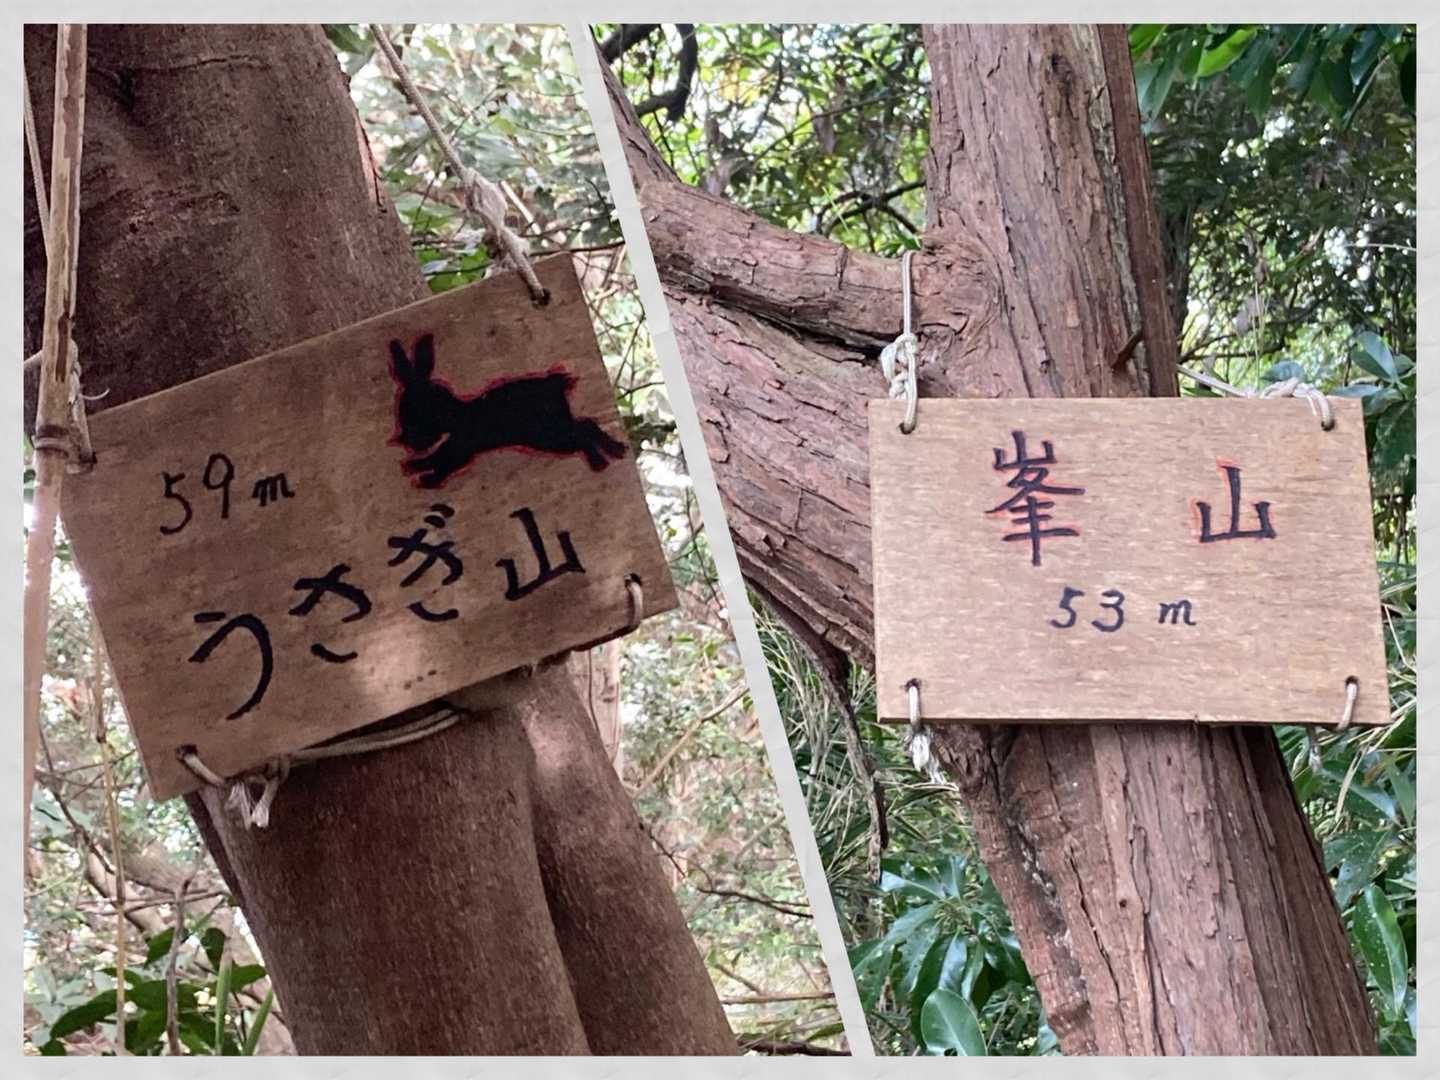 59m
うさぎ山
峯山
53m